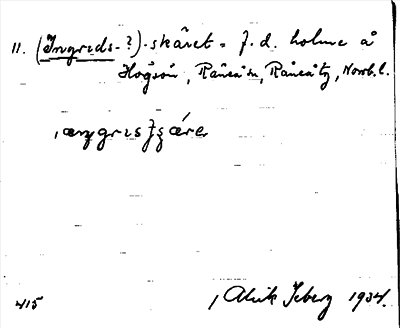 11. (Ingrids-?)-skäret = f.d. holme å
Högsön, Råneå sn, Råneå tg, Norrb. l.
Alvik Isberg 1934.
415